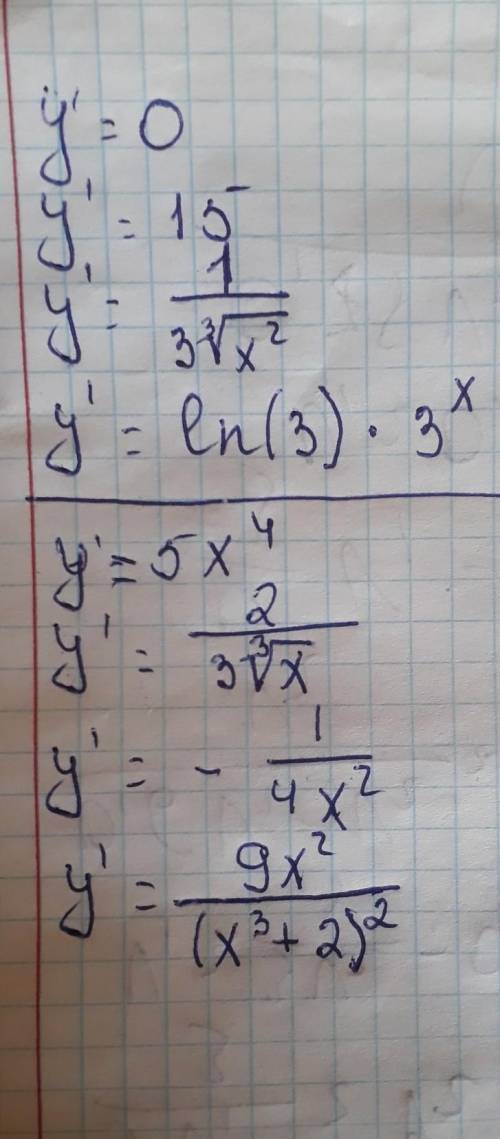 y' = 0
y' = 15
y' = 1 / (3∛x²)
y' = ln(3) · 3^x
y' = 5x⁴
y' = 2 / (3∛x)
y' = - 1 / (4x²)
y' = 9x² / (x³+2)²